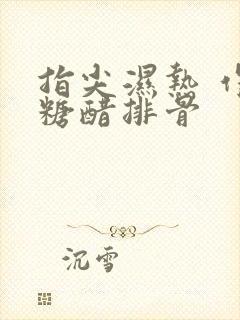 指尖濕熱
糖醋排骨
沉雪